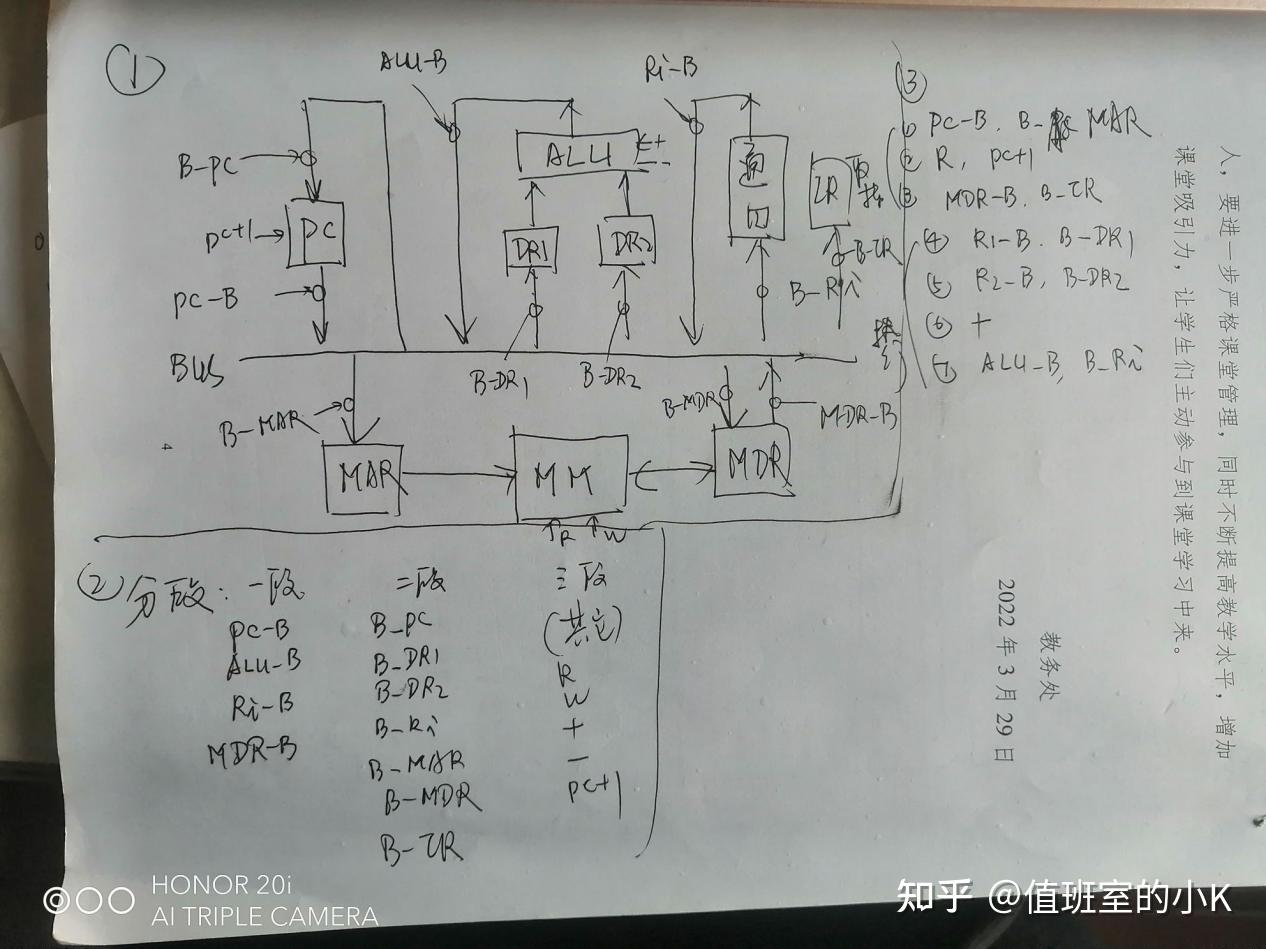 ①
ALU-B
Ri-B
B-PC
PC+1
PC
PC-B
ALU
+
-
DR1
DR2
通
IR
B-IR
B-Ri
BUS
B-DR1
B-DR2
B-MAR
B-MDR
MDR-B
MAR
MM
MDR
R
W
② 分段: 一段 二段 三段
PC-B B-PC (其它)
ALU-B B-DR1 R
Ri-B B-DR2 W
MDR-B B-Ri +
B-MAR -
B-MDR PC+1
B-IR
③
取指
① PC-B, B-MAR
② R, PC+1
③ MDR-B, B-IR
④ R1-B, B-DR1
⑤ R2-B, B-DR2
⑥ +
⑦ ALU-B, B-Ri
人，要进一步严格课堂管理，同时不断提高教学水平，增加
课堂吸引力，让学生们主动参与到课堂学习中来。
教务处
2022年3月29日
HONOR 20i
AI TRIPLE CAMERA
知乎 @值班室的小K